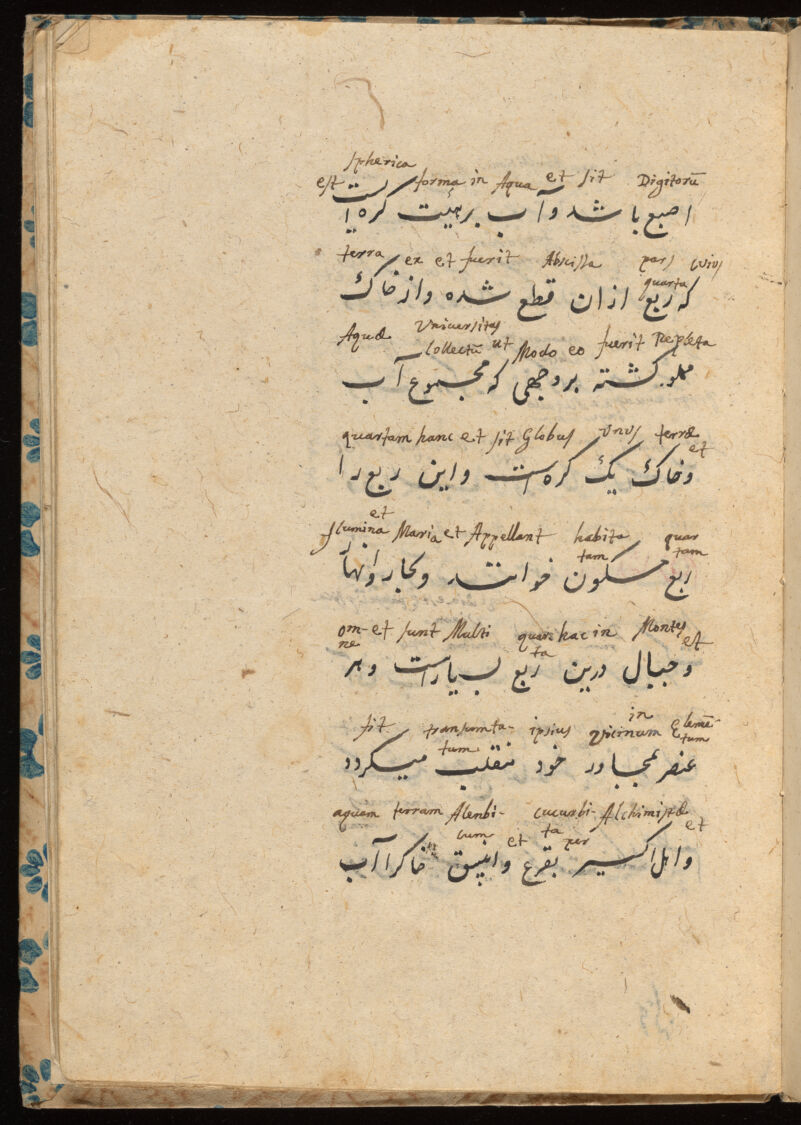 spherica
est forma in Aqua et sit Digitorū
اصبع باشد و آب بر هیئت کره ایست
terra ex et fuerit Abscissa pars cuius
quarta
که ربع ازان قطع شده و از خاک
Aquæ Universitas
Collectū ut Modo eo fuerit Repleta
مملو کشته بر وجهی که مجموع آب
quartam hanc et sit Globus unus terræ
et
و خاک یک کره است و این ربع را
et
flumina Maria et Appellant habita quar
tam tam
ربع مسکون خوانند و بحار و انهار
om- et sunt Multi quar hac in Montes
ne ta et
و جبال درین ربع بسیار است و هر
sit transmuta- ipsius in vicinum Elemē-
tum tum
عنصر بمجاور خود منقلب میکردد
aquam terram Alenbi- cucurbi- Alchimistæ
cum et ta per et
و اهل اکسیر بقرع و انبیق خاکرا آب